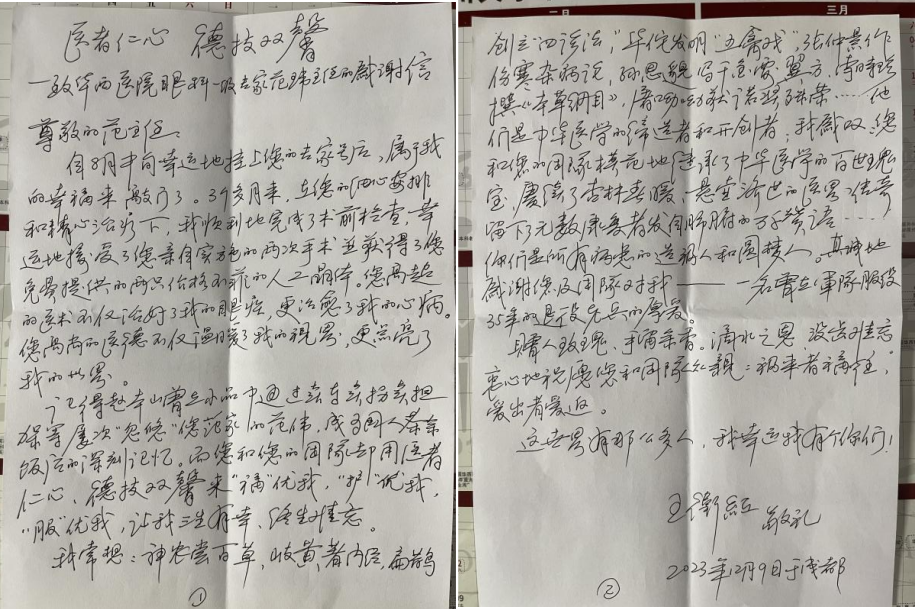 医者仁心 德技双馨
—致华西医院眼科一级专家范玮主任的感谢信
尊敬的范主任:
自8月中旬幸运地挂上您的专家号后,属于我
的幸福来敲门了。3个多月来,在您的细心安排
和精心治疗下,我顺利地完成了术前检查,幸
运地接受了您亲自实施的两次手术并获得了您
免费提供的两只价格不菲的人工晶体。您高超
的医术不仅治好了我的眼疾,更治愈了我的心病。
您高尚的医德不仅温暖了我的视界,更点亮了
我的世界。
记得赵本山曾在小品中通过卖车卖拐卖担
保等屡次"忽悠"您范家的范伟,成为国人茶余
饭后的深刻记忆。而您和您的团队却用医者
仁心、德技双馨来"
优我,"护"优我,
"服"优我,让我三生有幸、终生难忘。
我常想:神农尝百草,歧黄著内经,扁鹊
①
二月
三月
创立"四诊法",华佗发明"五禽戏",张仲景作
伤寒杂病论,孙思邈写千金
翼方,李时珍
撰《本草纲目》,屠呦呦获诺奖殊荣……他
们是中华医学的缔造者和开创者。我感叹:您
和您的团队模范地继承了中华医学的百世瑰
宝,赓续了杏林春暖、悬壶济世的医界传奇
留下了无数康复者发自肺腑的万千赞语……
你们是所有病患的造福人和圆梦人。真诚地
感谢您及团队对我——一名曾在军队服役
35年的退役老兵的厚爱。
赠人玫瑰、手留余香。滴水之恩 没齿难忘
衷心地祝愿您和团队众亲:福来者福往,
爱出者爱返。
这世界有那么多人,我幸运我有个你们!
王卫红 敬礼
2023年12月9日于成都
②